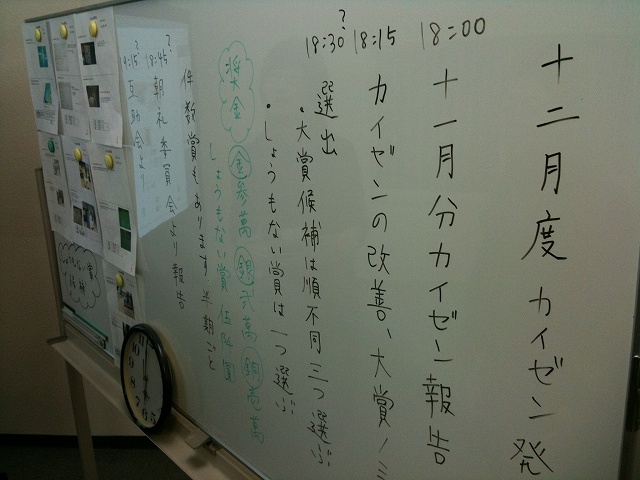 十二月度 カイゼン発
18:00 十一月分カイゼン報告
18:15 カイゼンの改善、大賞ノミ
?
18:30 選出
・大賞候補は順不同三つ選ぶ
・しょうもない賞は一つ選ぶ
奨金 金参萬 銀弐萬 銅壱萬
しょうもない賞 伍阡圓
件数賞もあります 半期ごと
?
18:45 朝礼委員会より報告
?
互助会より